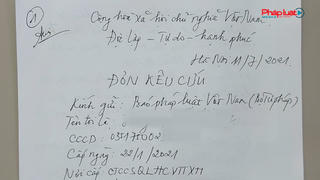 Pháp luật
①
Cộng hòa xã hội chủ nghĩa Việt Nam
Độc lập - Tự do - hạnh phúc
Hà Nội 11/7/2021.
ĐƠN KÊU CỨU
Kính gửi: Báo pháp luật Việt Nam (Bộ Tư pháp)
Tên tôi là:
CCCD: 035175002
Cấp ngày: 22/1/2021
Nơi cấp CTCCSQLHCVTTXH